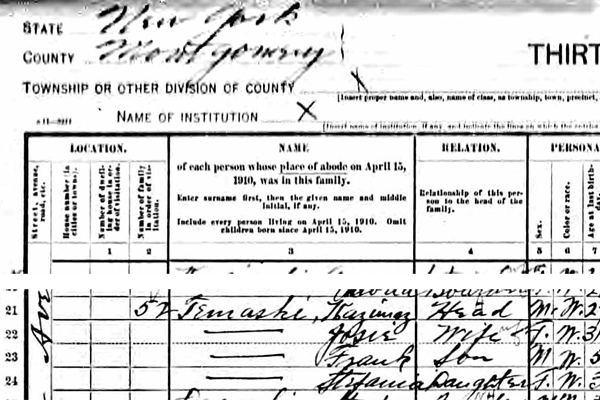 STATE New York
COUNTY Montgomery
THIRT
TOWNSHIP OR OTHER DIVISION OF COUNTY X
[Insert proper name and, also, name of class, as township, town, precinct,
NAME OF INSTITUTION X
[Insert name of institution, if any, and indicate the lines on which the
LOCATION. NAME RELATION. PERSONA
of each person whose place of abode on April 15, 1910, was in this family.
Enter surname first, then the given name and middle initial, if any.
Include every person living on April 15, 1910. Omit children born since April 15, 1910.
Relationship of this person to the head of the family.
Street, avenue, road, etc.
House number (in cities or towns).
Number of dwelling house in order of visitation.
Number of family in order of visitation.
Sex.
Color or race.
Age at last birthday.
1 2 3 4 5 6 7
21 52 Temaski, Kazimez Head M. W. 2
22 —— Josie Wife F. W. 3
23 —— Frank Son M W. 5
24 —— Stefania Daughter F. W. 3
Ave